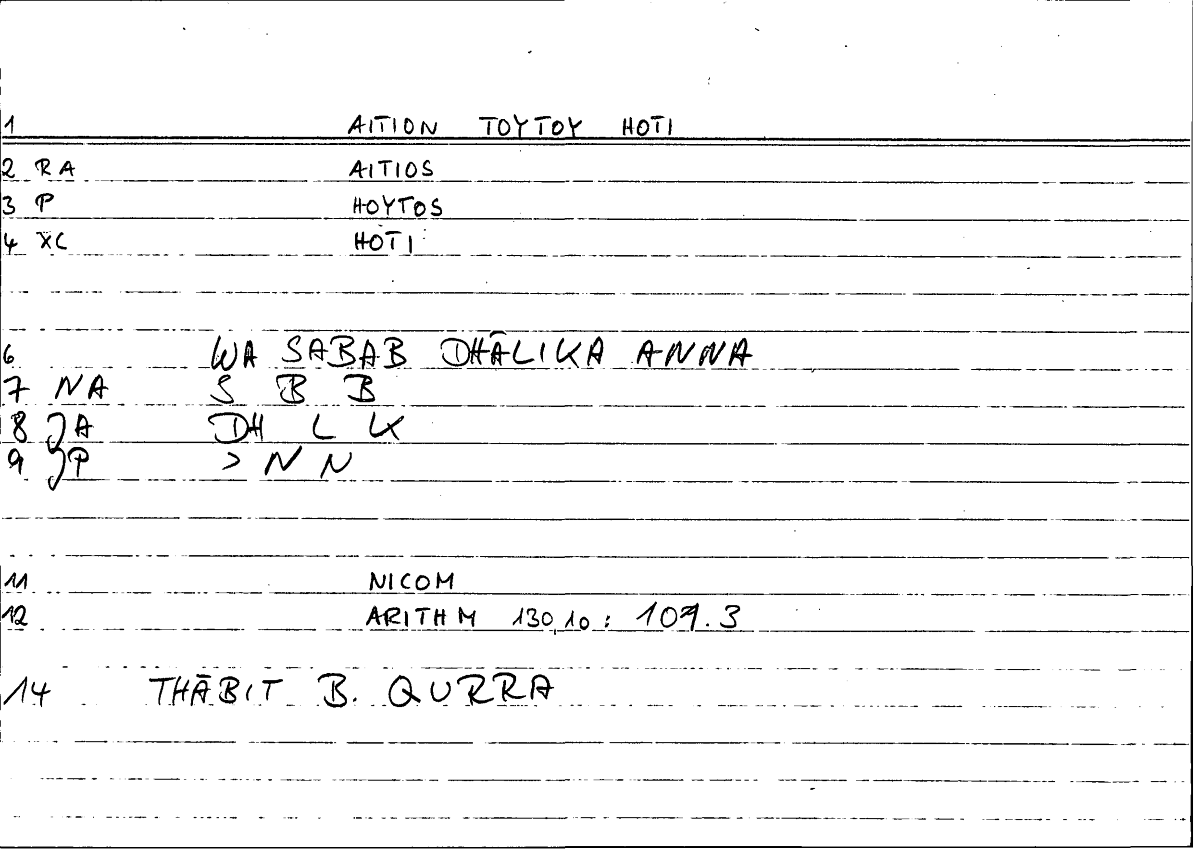 1 AITION TOYTOY HOTI
2 RA AITIOS
3 P HOYTOS
4 XC HOTI
6 WA SABAB DHĀLIKA ANNA
7 NA S B B
8 JA DH L K
9 JP > N N
11 NICOM
12 ARITHM 130,10 : 109.3
14 THĀBIT B. QURRA